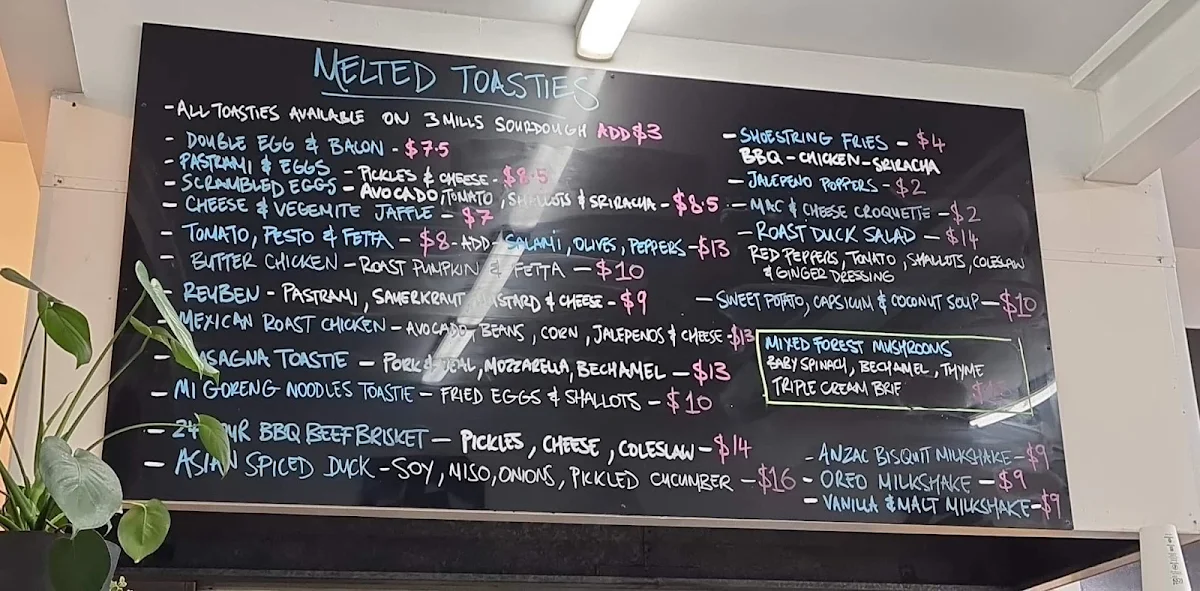 MELTED TOASTIES
- ALL TOASTIES AVAILABLE ON 3 MILLS SOURDOUGH ADD $3
- DOUBLE EGG & BACON - $7.5
- PASTRAMI & EGGS - PICKLES & CHEESE - $8.5
- SCRAMBLED EGGS - AVOCADO, TOMATO, SHALLOTS & SRIRACHA - $8.5
- CHEESE & VEGEMITE JAFFLE - $7
- TOMATO, PESTO & FETTA - $8 - ADD - SALAMI, OLIVES, PEPPERS - $13
- BUTTER CHICKEN - ROAST PUMPKIN & FETTA - $10
- REUBEN - PASTRAMI, SAUERKRAUT, MUSTARD & CHEESE - $9
- MEXICAN ROAST CHICKEN - AVOCADO, BEANS, CORN, JALEPENOS & CHEESE - $13
- LASAGNA TOASTIE - PORK & VEAL, MOZZARELLA, BECHAMEL - $13
- MI GORENG NOODLES TOASTIE - FRIED EGGS & SHALLOTS - $10
- 24 HOUR BBQ BEEF BRISKET - PICKLES, CHEESE, COLESLAW - $14
- ASIAN SPICED DUCK - SOY, MISO, ONIONS, PICKLED CUCUMBER - $16
- SHOESTRING FRIES - $4
BBQ - CHICKEN - SRIRACHA
- JALEPENO POPPERS - $2
- MAC & CHEESE CROQUETTE - $2
- ROAST DUCK SALAD - $14
RED PEPPERS, TOMATO, SHALLOTS, COLESLAW
& GINGER DRESSING
- SWEET POTATO, CAPSICUM & COCONUT SOUP - $10
MIXED FOREST MUSHROOMS
BABY SPINACH, BECHAMEL, THYME
TRIPLE CREAM BRIE
- ANZAC BISQUIT MILKSHAKE - $9
- OREO MILKSHAKE - $9
- VANILLA & MALT MILKSHAKE - $9